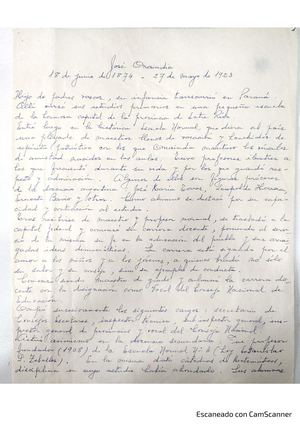 José Onaindia
18 de junio de 1874 - 27 de mayo de 1923
Hijo de padres vascos, su infancia transcurrió en Paraná.
Allí cursó sus estudios primarios en una pequeña escuela
de la hermosa capital de la provincia de Entre Ríos.
Entró luego en la histórica Escuela Normal, que diera al país
una pléyade de maestros llenos de vocación y
espíritu patriótico con los que Onaindia mantuvo los vínculos
de amistad nacidos en las aulas. Tuvo profesores ilustres a
los que
respeto y admiración. Algunos de ellos
de la docencia argentina: José María Torres, Leopoldo Herrera,
Ernesto Bavio y otros. Como alumno se destacó por su capa-
cidad y contracción al estudio.
Con los títulos de maestro y profesor normal, se trasladó a la
capital federal y comenzó su carrera docente, poniendo al ser-
vicio de la misma su fe en la educación del pueblo y sus
ideas democráticas. Su carrera está avalada por el
amor a los niños y a los jóvenes, a quienes brindó no sólo
su saber y su consejo, sino su ejemplo de conducta.
Comenzó siendo maestro de grado y culminó la carrera do-
cente con la designación como Vocal del Consejo Nacional de
Educación.
Ocupó sucesivamente los siguientes cargos: secretario de
Consejos Escolares, inspector técnico, sub inspector general, ins-
pector general de provincias y vocal del Consejo Nacional.
Actuó asimismo en la docencia secundaria. Fue profesor
fundador (1908) de la Escuela Normal Nº 6 (hoy Estanislao
S. Zeballos). En la misma dictó cátedras de Matemáticas,
disciplina en cuyo estudio había ahondado. Sus alumnos
Escaneado con CamScanner